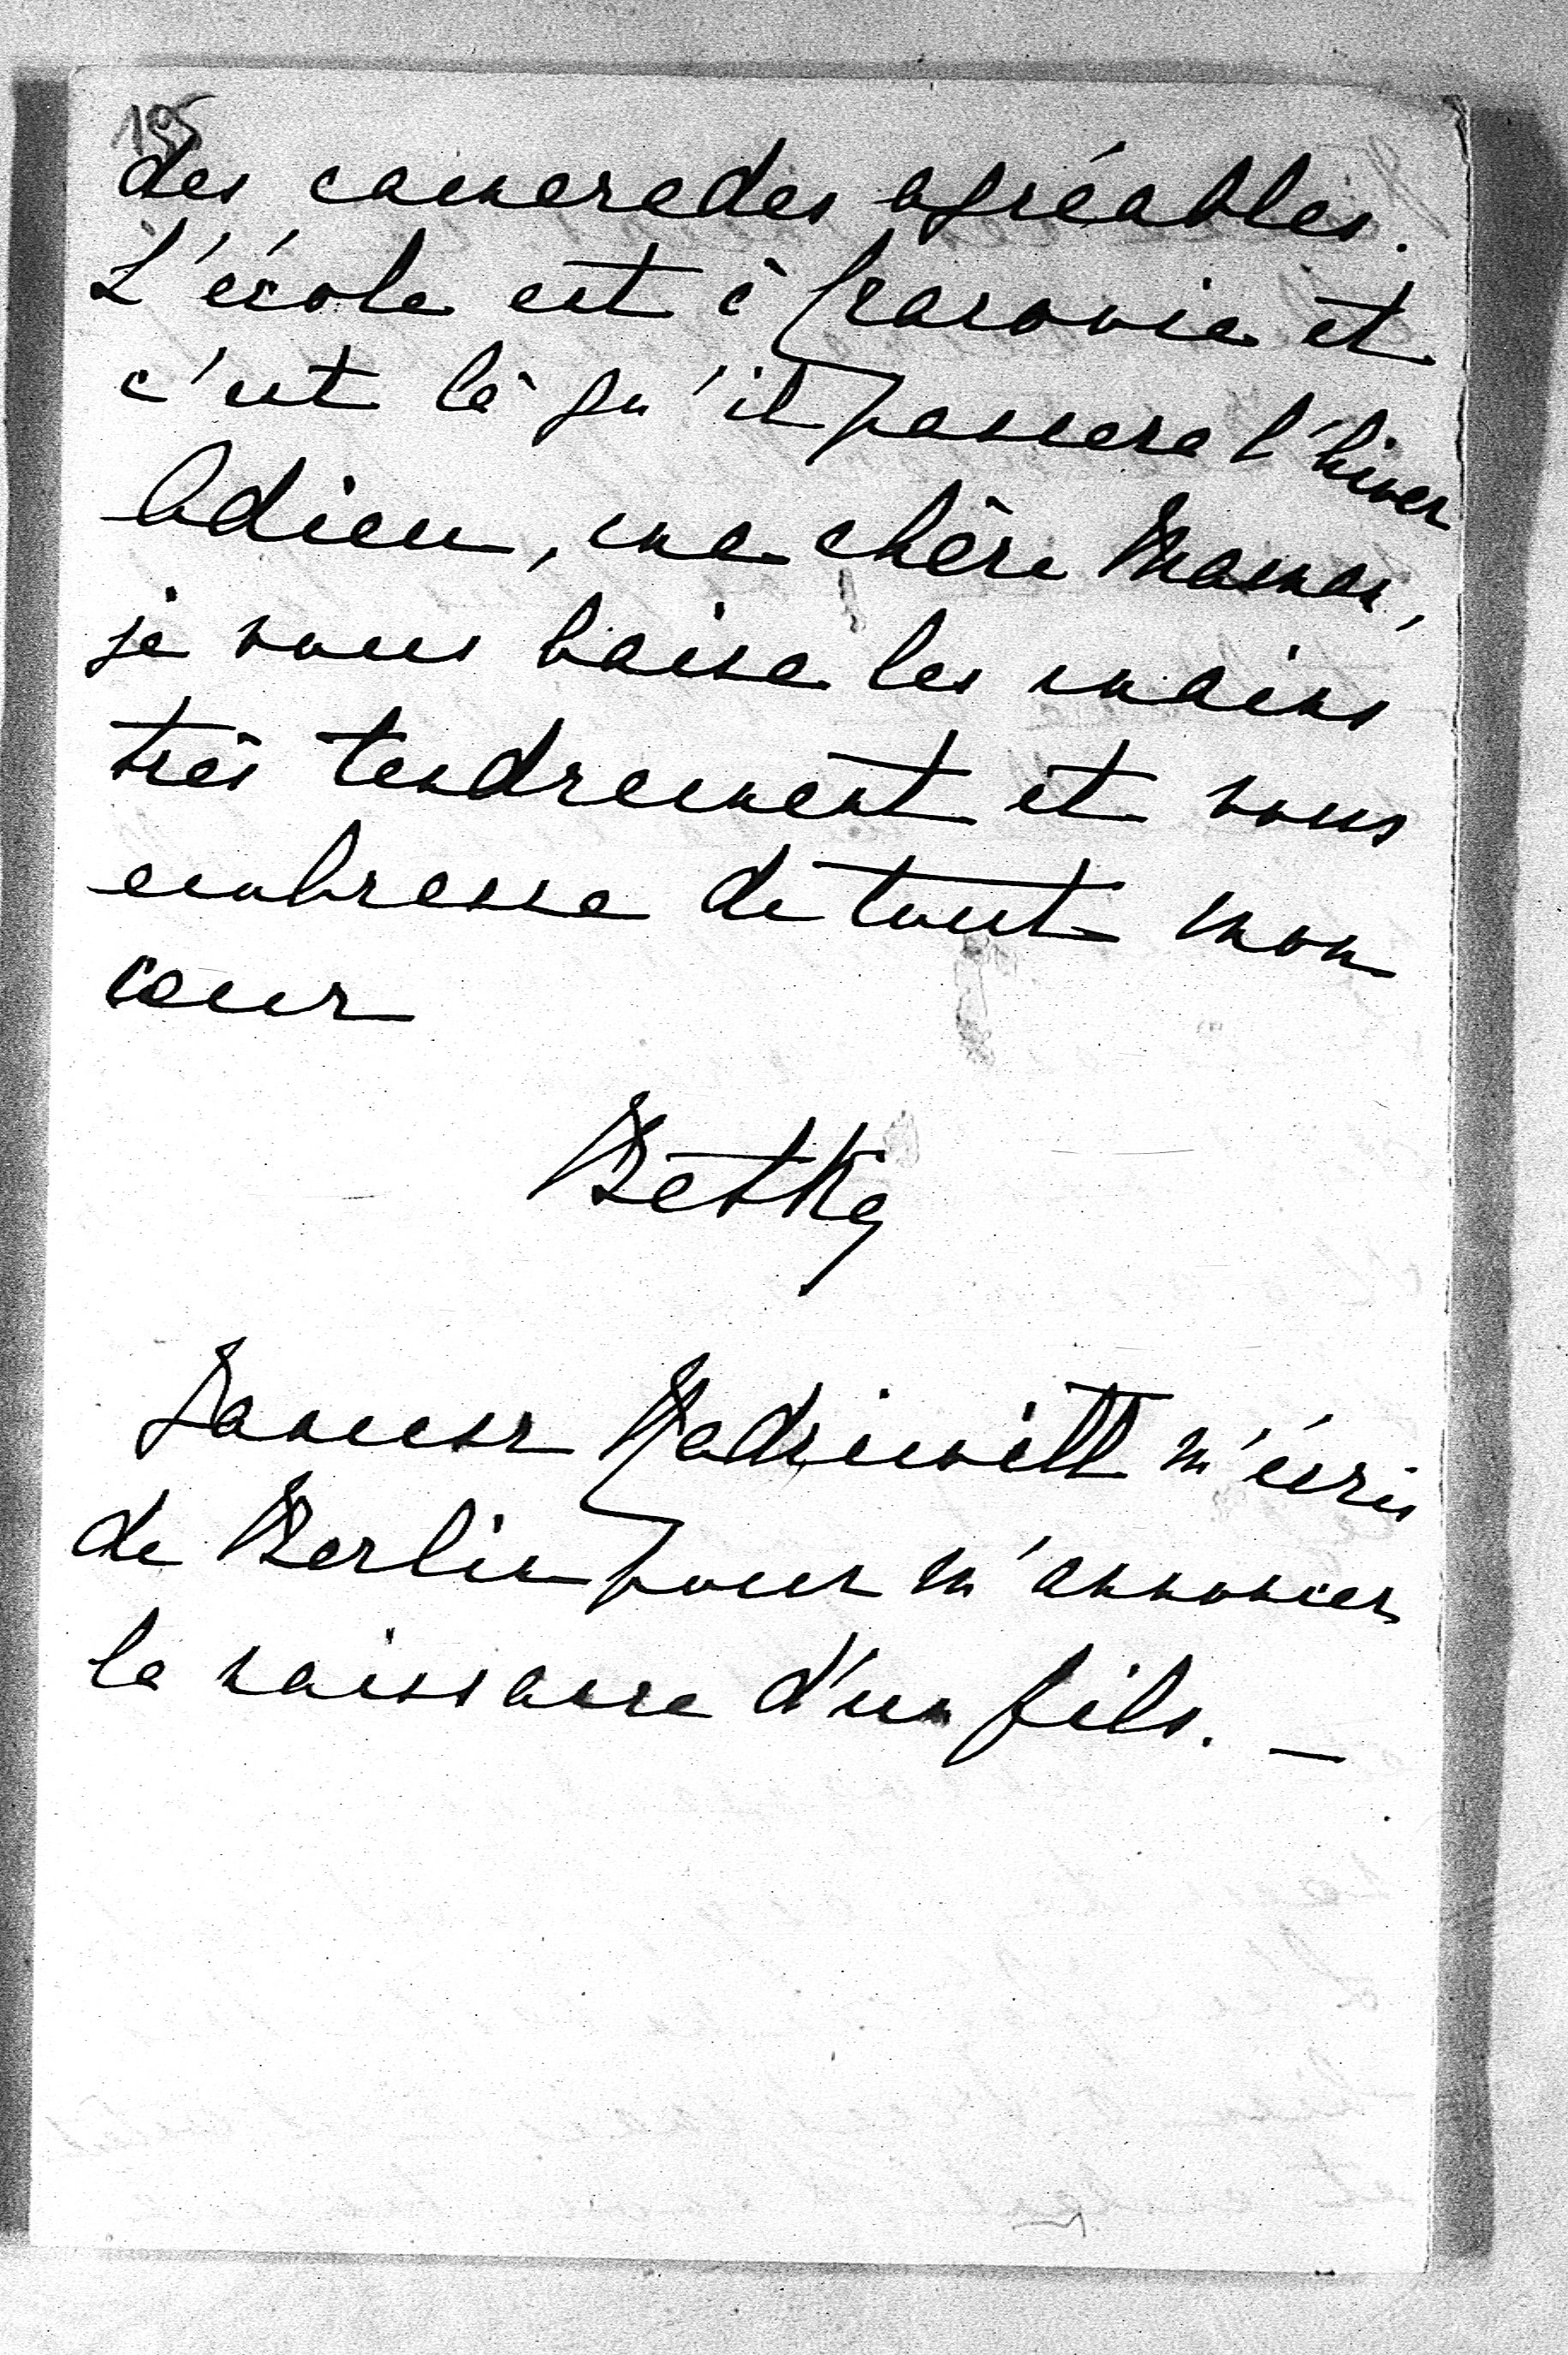 195
des camarades agréables.
L'école est à Cracovie et
c'est là qu'il passera l'hiver
Adieu, ma chère Maman,
je vous baise les mains
très tendrement et vous
embrasse de tout mon
cœur
Betka
Radziwill m'écris
de Berlin pour m'annoncer
la naissance d'un fils. —